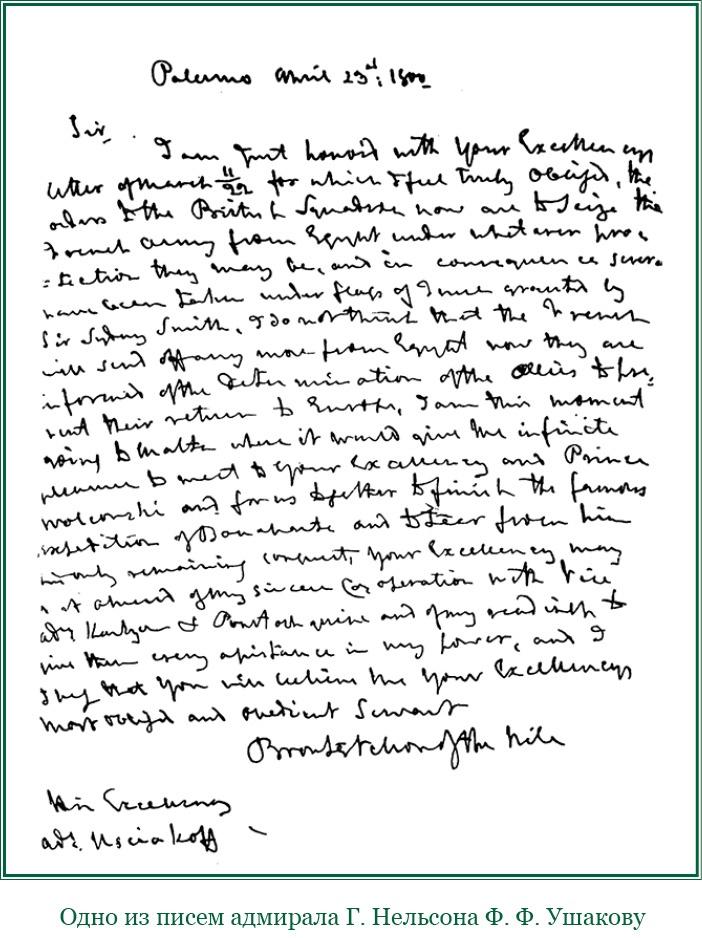 Palermo April 23d: 1800
Sir
I am just honord with Your Excellencys
letter of March 11/22 for which I feel truly obliged, the
orders to the British Squadron now are to seize the
French army from Egypt under whatever pro=
=tection they may be, and in consequence severa
have been taken under flags of Truce granted by
Sir Sydney Smith, I do not think that the French
will send off any more from Egypt now they are
informed of the determination of the allies to pre:
vent their return to Europe, I am this moment
going to Malta where it would give me infinite
pleasure to meet to your Excellency and Prince
and for us together to finish the famous
expedition of Bonaparte and to tear from him
his only remaining conquest, Your Excellency may
of my sincere Cooperation with Vice
adl & and of my readiness to
give them every assistance in my power, and I
beg that You will believe me Your Excellencys
most obliged and obedient Servant
Bronte Nelson of the Nile
His Excellency
adl. Usciakoff
Одно из писем адмирала Г. Нельсона Ф. Ф. Ушакову